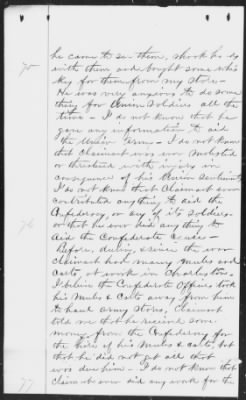 he came to see them, shook hds
75 with them and bought some whis
key for them from my Store -
He was very anxious to do some
thing for Union Soldiers all the
time - I do not know that he
gave any information to aid
the Union Army - I do not know
that Claimant was ever molested
or threatened with injury in
consequence of his Union Sentiments
I do not know that Claimant ever
contributed anything to aid the
Confederacy, or any of its soldiers
76 or that he ever did anything to
aid the Confederate Cause -
Before, during, & since the war
claimant had many mules and
Carts, at work in Charleston -
I believe the Confederate Officers took
his Mules & Carts away from him
to haul army Stores, Claimant
told me that he received some
money from the Confederacy for
the hire of his Mules & Carts, but
that he did not get all that
was due him - I do not know that
77 Claimant ever did any work for the